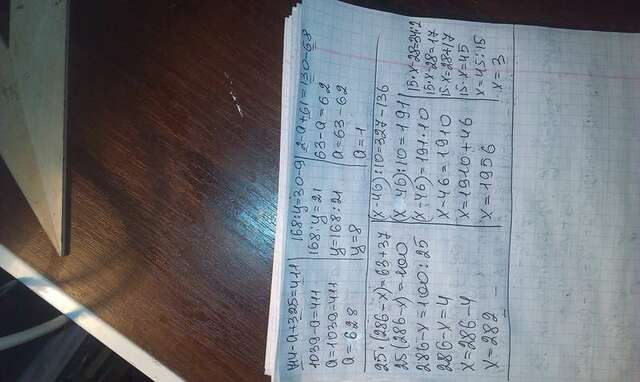 714-a+325=411
1039-a=411
a=1039-411
a=628
168:y=30-9
168:y=21
y=168:21
y=8
2-a+61=130-68
63-a=62
a=63-62
a=1
25·(286-x)=63+37
25(286-x)=100
286-x=100:25
286-x=4
x=286-4
x=282
(x-46):10=327-136
(x-46):10=191
(x-46)=191·10
x-46=1910
x=1910+46
x=1956
15·x-28=34:2
15·x-28=17
15·x=28+17
15·x=45
x=45:15
x=3